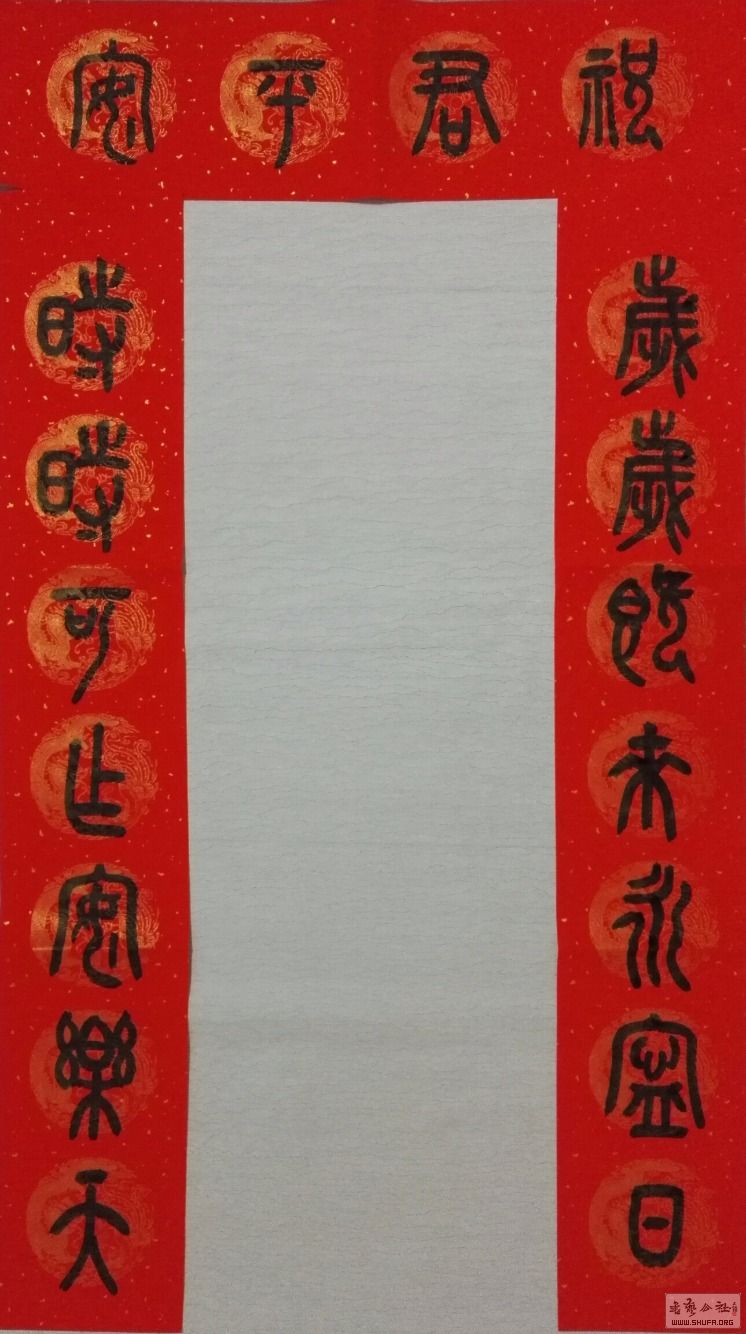 祝君平安
歲歲既未永寧日
時時可止安樂天
書藝公社
WWW.SHUFA.ORG